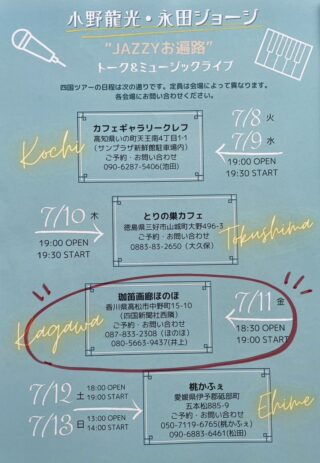 小野龍光・永田ジョージ
"JAZZYお遍路"
トーク&ミュージックライブ
四国ツアーの日程は次の通りです。定員は会場によって異なります。
各会場にお問い合わせください。
Kochi
カフェギャラリークレフ
高知県いの町天王南4丁目1-1
(サンプラザ新鮮館駐車場内)
ご予約・お問い合わせ
090-6287-5406(池田)
7/8 火
7/9 水
19:00 OPEN
19:30 START
7/10 木
19:00 OPEN
19:30 START
とりの巣カフェ
徳島県三好市山城町大野496-3
ご予約・お問い合わせ
0883-82-2650(大久保)
Tokushima
Kagawa
珈笛画廊ほのほ
香川県高松市中野町15-10
(四国新聞社西隣)
ご予約・お問い合わせ
087-833-2308(ほのほ)
080-5663-9437(井上)
7/11 金
18:30 OPEN
19:00 START
7/12 土
18:00 OPEN
19:00 START
7/13 日
13:00 OPEN
14:00 START
桃かふぇ
愛媛県伊予郡砥部町
五本松885-9
ご予約・お問い合わせ
050-7119-6765(桃かふぇ)
090-6883-6461(松田)
Ehime